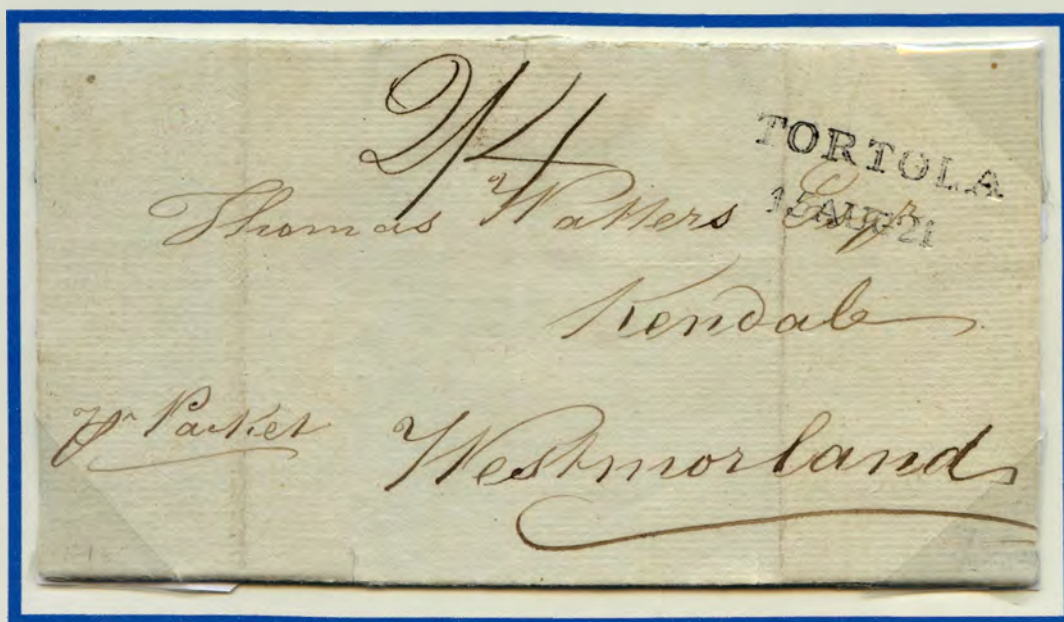 2/4
TORTOLA
15 AUG 21
Thomas Watters Esqr
Kendal
pr Packet
Westmorland